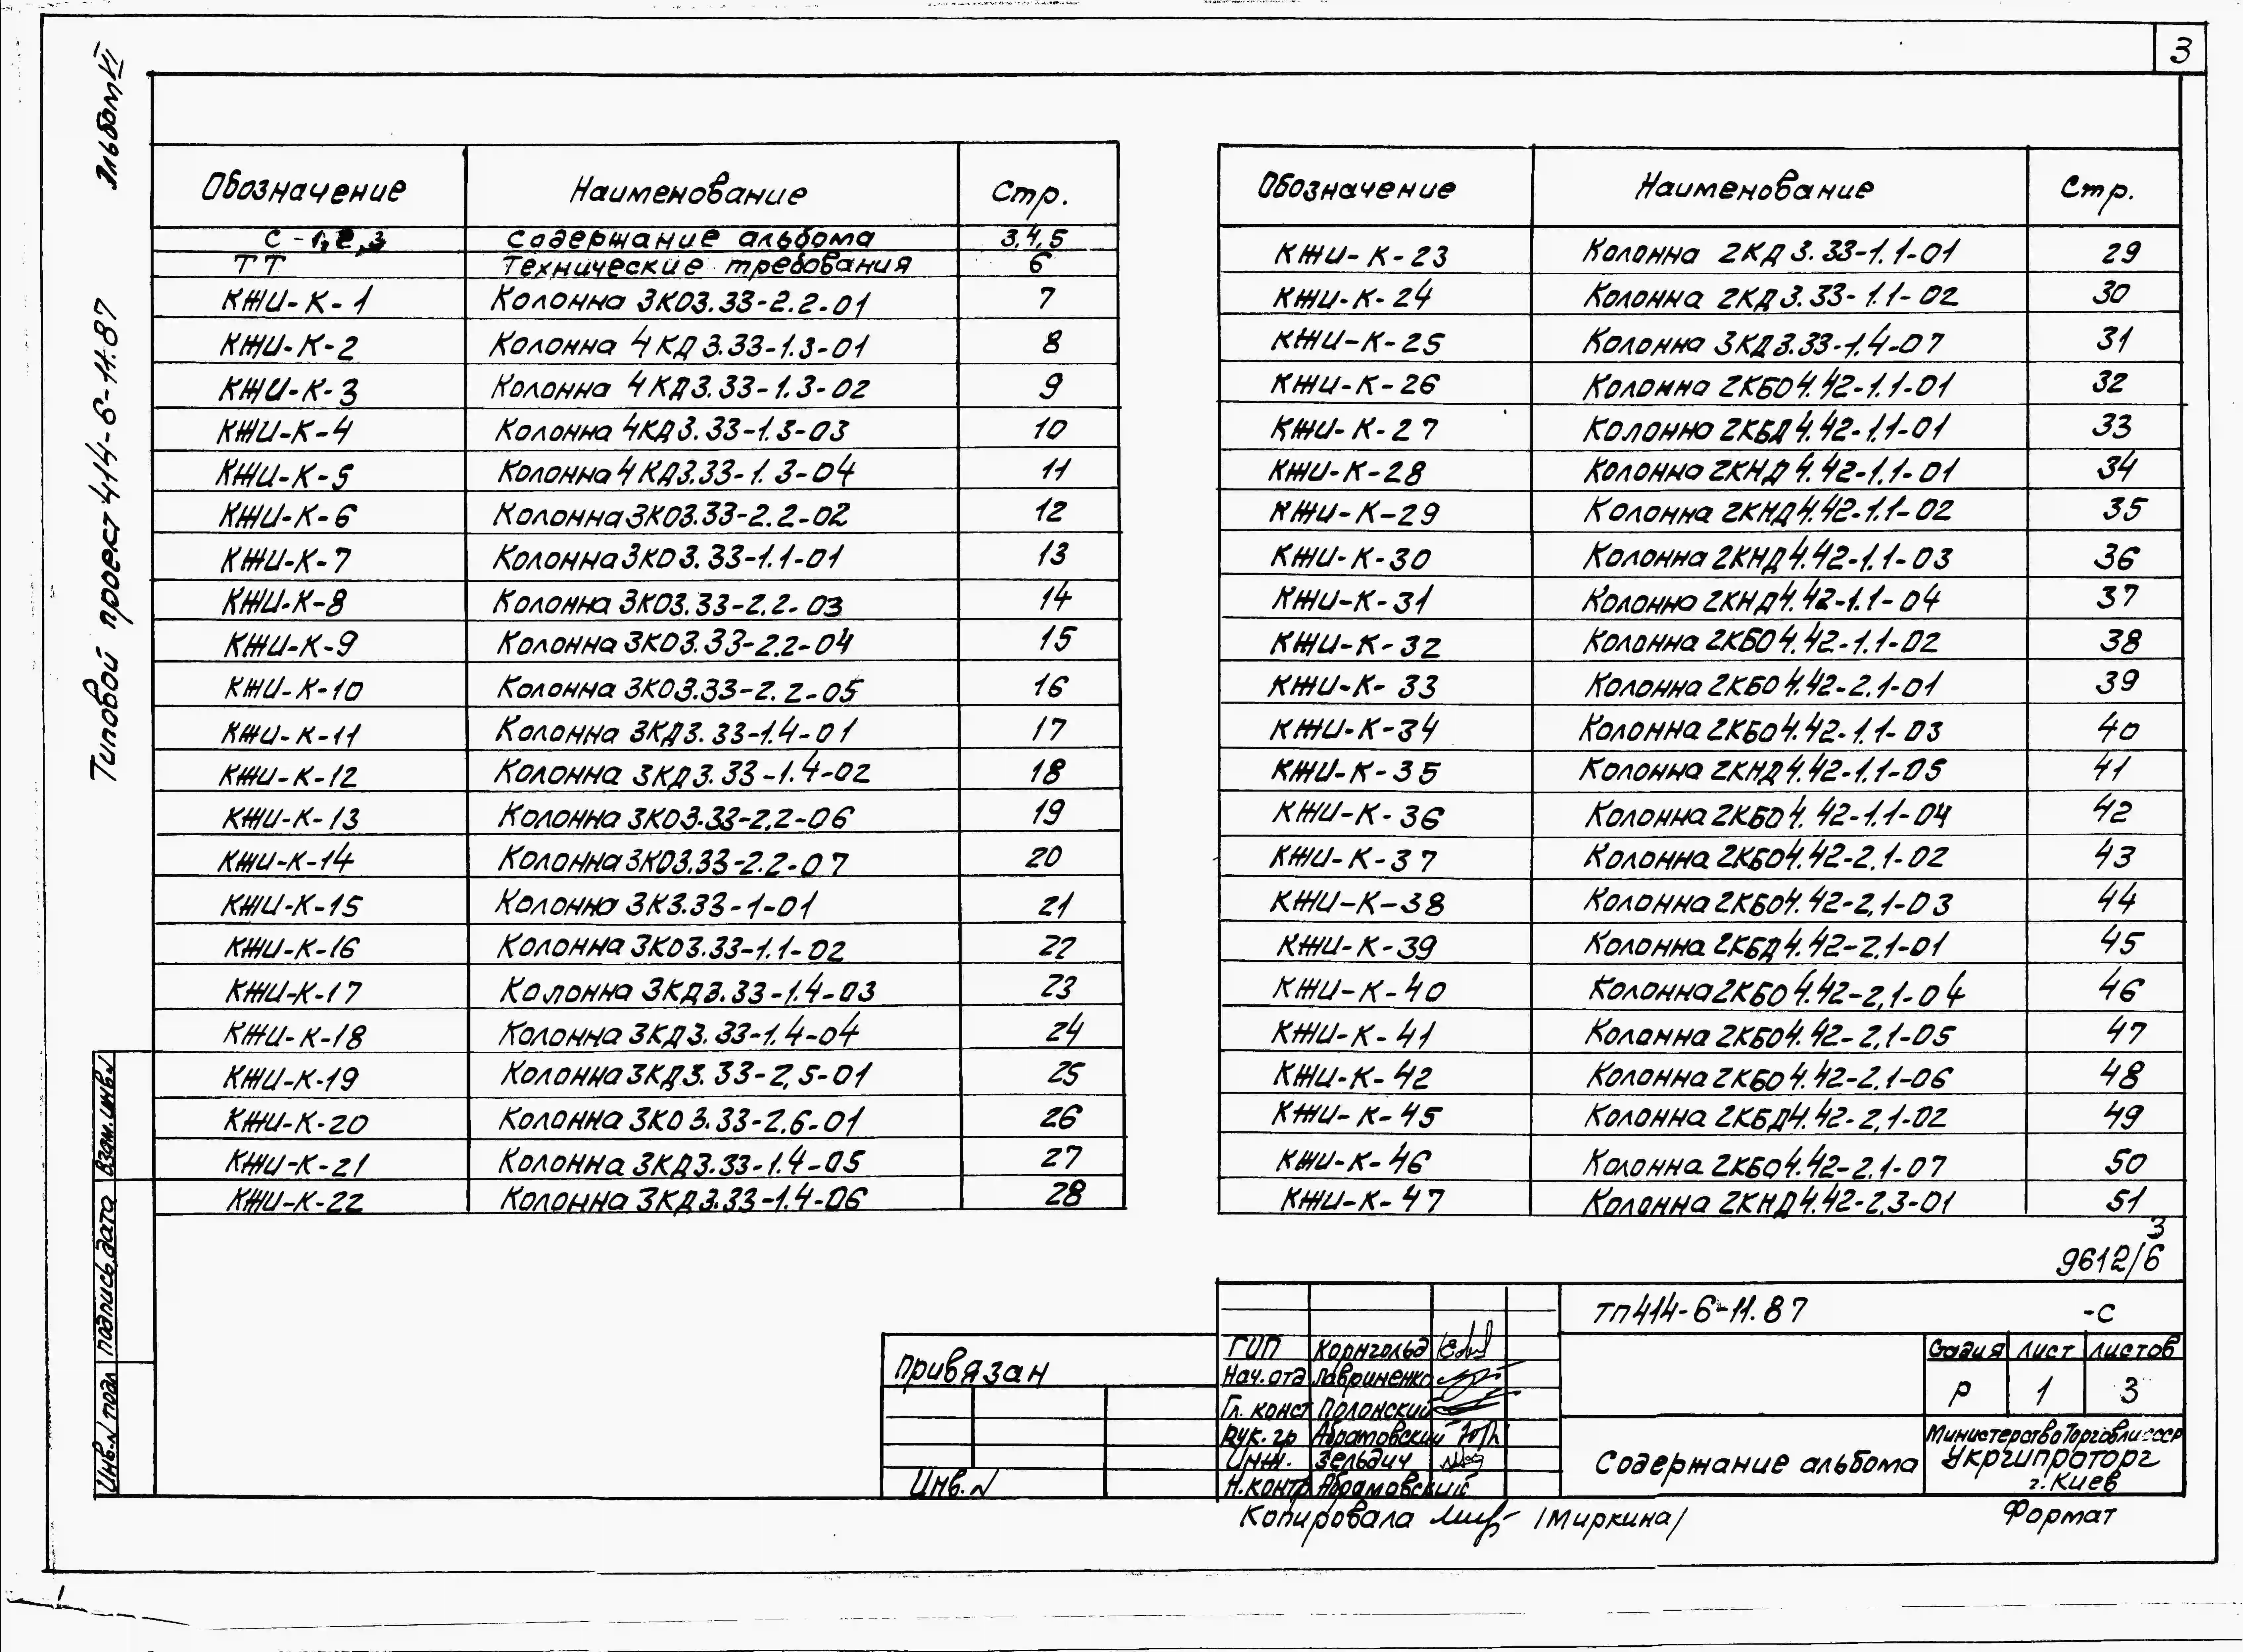 3
Альбом VI
Типовой проект 414-6-11.87
Обозначение Наименование Стр.
С-1,2,3 Содержание альбома 3,4,5
ТТ Технические требования 6
КЖИ-К-1 Колонна 3КО3.33-2.2-01 7
КЖИ-К-2 Колонна 4КД3.33-1.3-01 8
КЖИ-К-3 Колонна 4КД3.33-1.3-02 9
КЖИ-К-4 Колонна 4КД3.33-1.3-03 10
КЖИ-К-5 Колонна 4КД3.33-1.3-04 11
КЖИ-К-6 Колонна 3КО3.33-2.2-02 12
КЖИ-К-7 Колонна 3КО3.33-1.1-01 13
КЖИ-К-8 Колонна 3КО3.33-2.2-03 14
КЖИ-К-9 Колонна 3КО3.33-2.2-04 15
КЖИ-К-10 Колонна 3КО3.33-2.2-05 16
КЖИ-К-11 Колонна 3КД3.33-1.4-01 17
КЖИ-К-12 Колонна 3КД3.33-1.4-02 18
КЖИ-К-13 Колонна 3КО3.33-2.2-06 19
КЖИ-К-14 Колонна 3КО3.33-2.2-07 20
КЖИ-К-15 Колонна 3К3.33-1-01 21
КЖИ-К-16 Колонна 3КО3.33-1.1-02 22
КЖИ-К-17 Колонна 3КД3.33-1.4-03 23
КЖИ-К-18 Колонна 3КД3.33-1.4-04 24
КЖИ-К-19 Колонна 3КД3.33-2,5-01 25
КЖИ-К-20 Колонна 3КО3.33-2.6-01 26
КЖИ-К-21 Колонна 3КД3.33-1.4-05 27
КЖИ-К-22 Колонна 3КД3.33-1.4-06 28
Обозначение Наименование Стр.
КЖИ-К-23 Колонна 2КД3.33-1.1-01 29
КЖИ-К-24 Колонна 2КД3.33-1.1-02 30
КЖИ-К-25 Колонна 3КД3.33-1.4-07 31
КЖИ-К-26 Колонна 2КБО4.42-1.1-01 32
КЖИ-К-27 Колонна 2КБД4.42-1.1-01 33
КЖИ-К-28 Колонна 2КНД4.42-1.1-01 34
КЖИ-К-29 Колонна 2КНД4.42-1.1-02 35
КЖИ-К-30 Колонна 2КНД4.42-1.1-03 36
КЖИ-К-31 Колонна 2КНД4.42-1.1-04 37
КЖИ-К-32 Колонна 2КБО4.42-1.1-02 38
КЖИ-К-33 Колонна 2КБО4.42-2.1-01 39
КЖИ-К-34 Колонна 2КБО4.42-1.1-03 40
КЖИ-К-35 Колонна 2КНД4.42-1.1-05 41
КЖИ-К-36 Колонна 2КБО4.42-1.1-04 42
КЖИ-К-37 Колонна 2КБО4.42-2.1-02 43
КЖИ-К-38 Колонна 2КБО4.42-2,1-03 44
КЖИ-К-39 Колонна 2КБД4.42-2.1-01 45
КЖИ-К-40 Колонна 2КБО4.42-2,1-04 46
КЖИ-К-41 Колонна 2КБО4.42-2,1-05 47
КЖИ-К-42 Колонна 2КБО4.42-2.1-06 48
КЖИ-К-45 Колонна 2КБД4.42-2,1-02 49
КЖИ-К-46 Колонна 2КБО4.42-2.1-07 50
КЖИ-К-47 Колонна 2КНД4.42-2.3-01 51
3
9612/6
ТП414-6-11.87 -С
ГИП Корнгольд
Нач.отд Лавриненко
Гл. конст Полонский
Рук.гр Абрамовский
Инж. Зельдич
Н.контр Абрамовский
Стадия Лист Листов
Р 1 3
Содержание альбома
Министерство Торговли СССР
Укргипроторг
г.Киев
Привязан
Инв.N
Взам.инв.N
Подпись,дата
Инв.N подл
Копировала /Миркина/
Формат